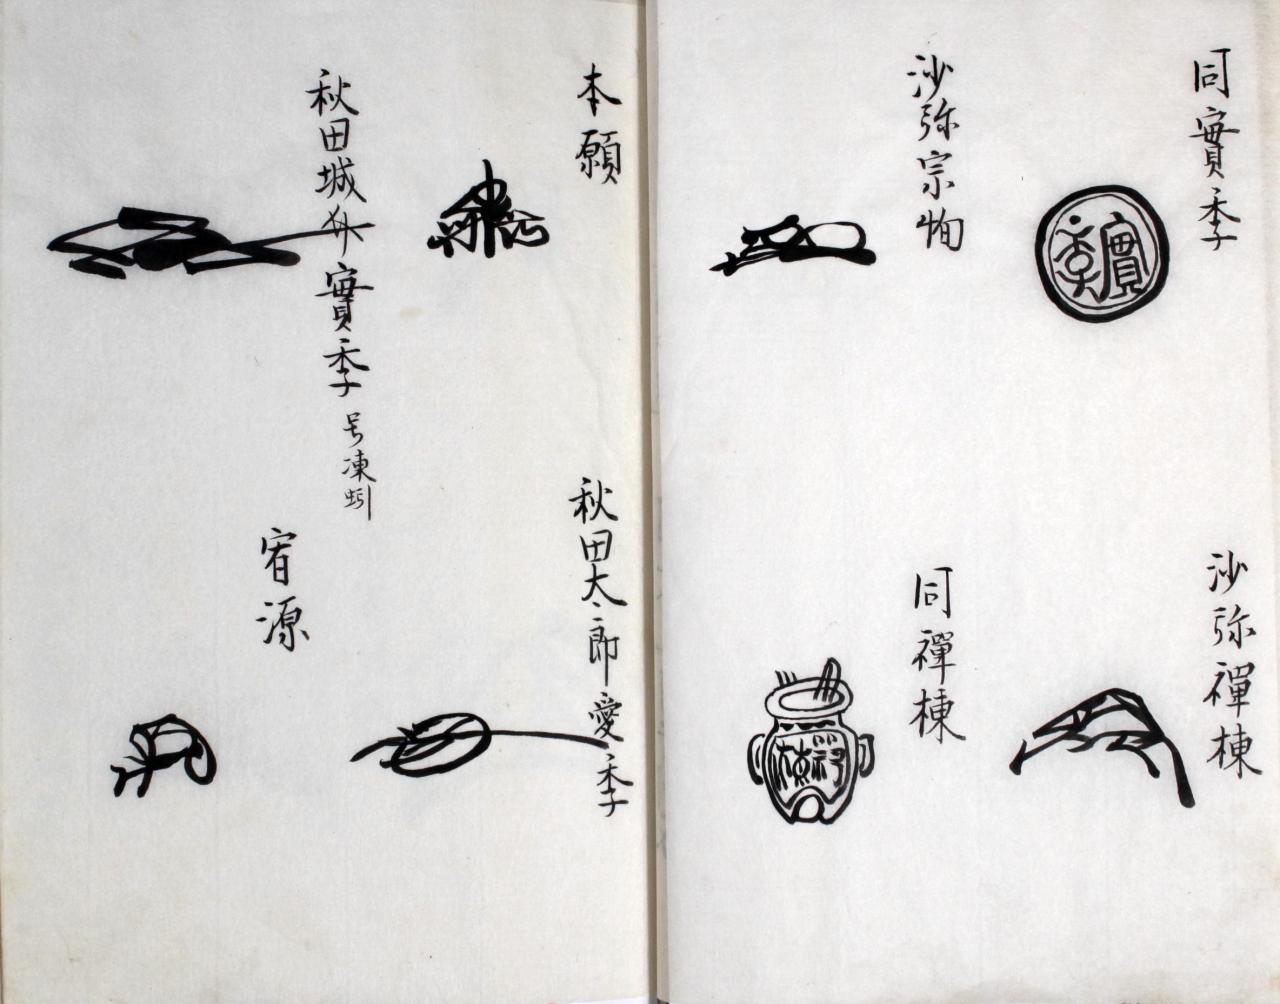 同實季
實季
沙弥禪棟
沙弥宗恂
同禪棟
禪棟
本願
秋田太郎愛季
秋田城介實季 号凍蚓
宥源